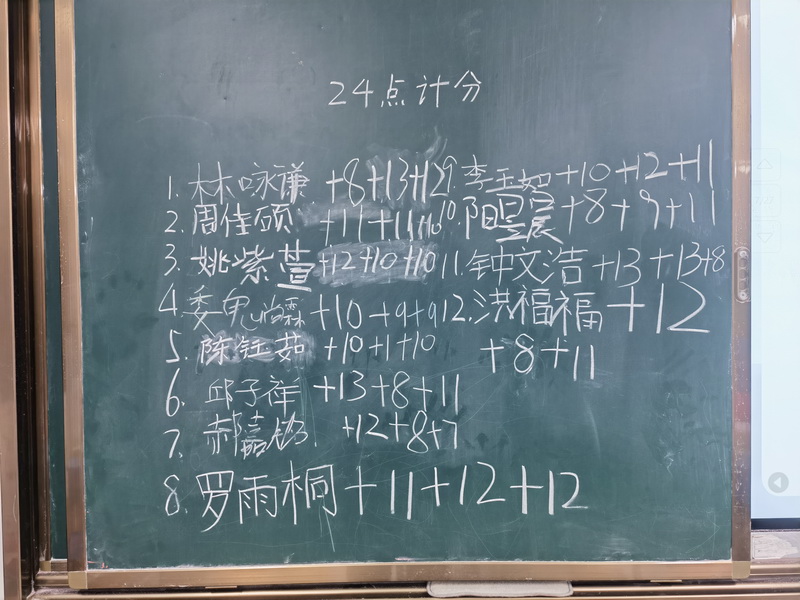 24点计分
1. 林咏谦 +8+13+12
2. 周佳硕 +11+11+10
3. 姚紫萱 +12+10+10
4. 魏怡霖 +10+9+9
5. 陈钰茹 +10+1+10
6. 邱子祥 +13+8+11
7. 郝嘉 +12+8+7
8. 罗雨桐 +11+12+12
9. 李玉 +10+12+11
10. 阳昱宸 +8+9+11
11. 钟文洁 +13+13+8
12. 洪福福 +12
+8+11